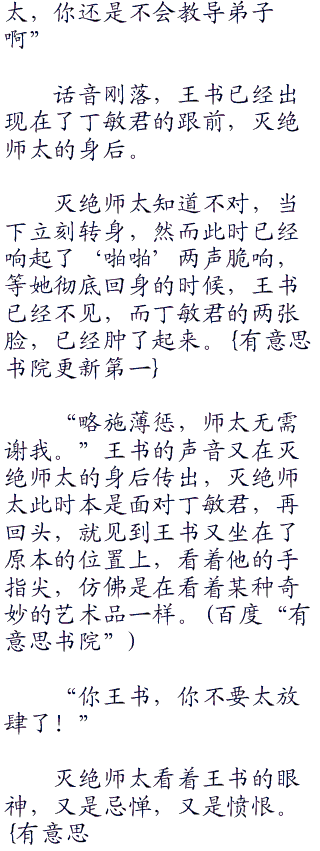 太，你还是不会教导弟子
啊”
话音刚落，王书已经出
现在了丁敏君的跟前，灭绝
师太的身后。
灭绝师太知道不对，当
下立刻转身，然而此时已经
响起了‘啪啪’两声脆响，
等她彻底回身的时候，王书
已经不见，而丁敏君的两张
脸，已经肿了起来。{有意思
书院更新第一}
“略施薄惩，师太无需
谢我。”王书的声音又在灭
绝师太的身后传出，灭绝师
太此时本是面对丁敏君，再
回头，就见到王书又坐在了
原本的位置上，看着他的手
指尖，仿佛是在看着某种奇
妙的艺术品一样。(百度“有
意思书院”)
“你王书，你不要太放
肆了！”
灭绝师太看着王书的眼
神，又是忌惮，又是愤恨。
{有意思